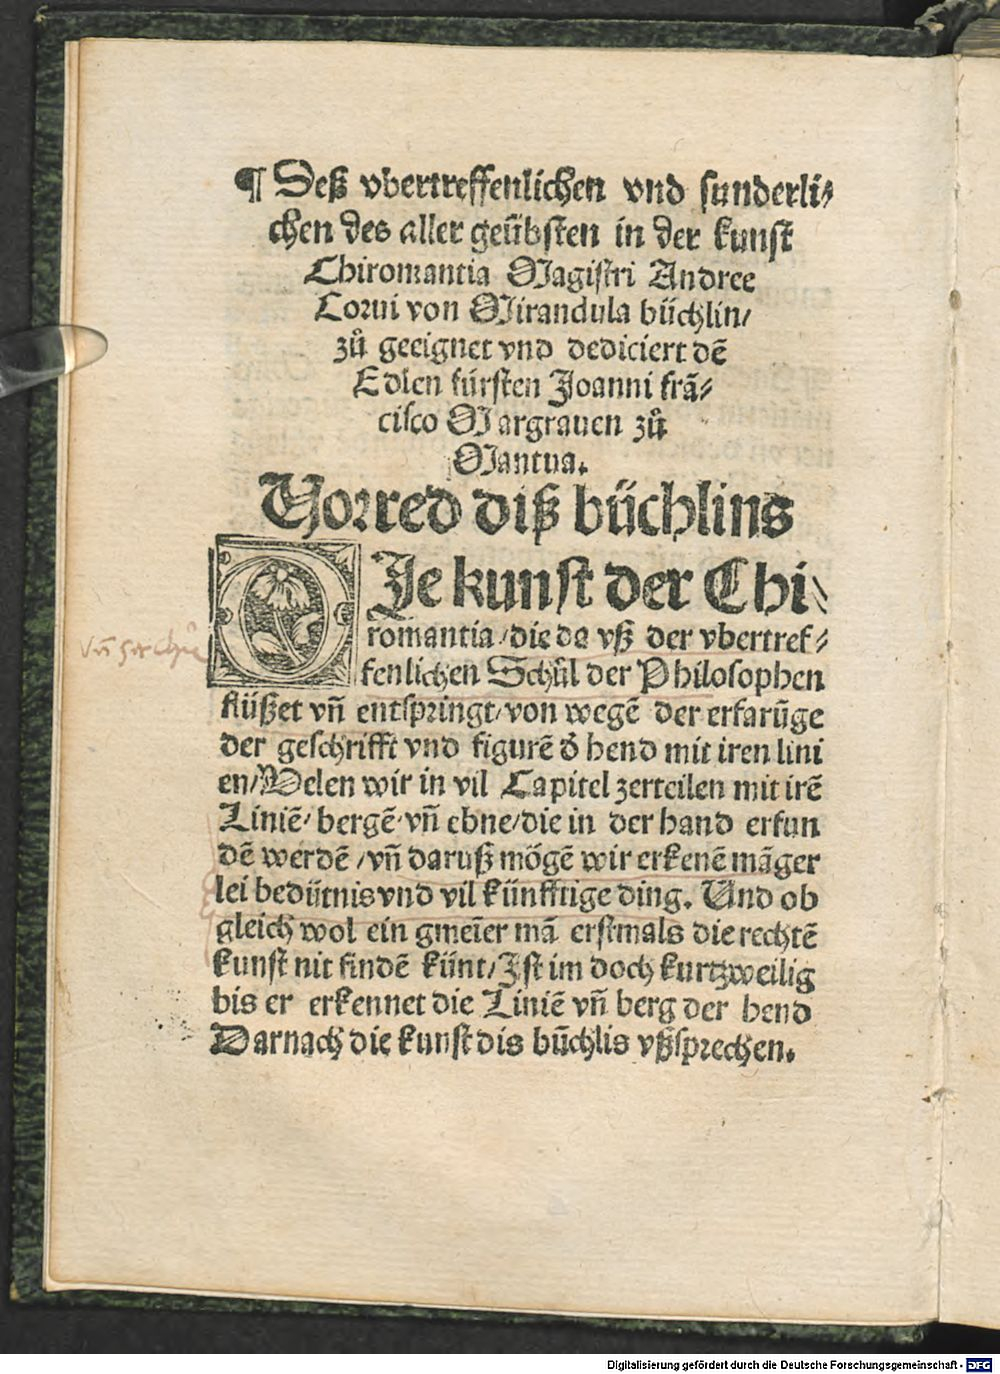 ¶ Deß vbertreffenlichen vnd sunderli⸗
chen des aller geűbsten in der kunst
Chiromantia Magistri Andree
Corui von Mirandula büchlin/
zů geeignet vnd dediciert dē
Edlen fürsten Joanni frā⸗
cisco Margrauen zů
Mantua.
Vorred diß büchlins
DJe kunst der Chi⸗
romantia/die da vß der vbertref⸗
fenlichen Schůl der Philosophen
flüßet vñ entspringt/von wegē der erfarūge
der geschrifft vnd figurē d' hend mit iren lini
en/Welen wir in vil Capitel zerteilen mit irē
Liniē/bergē/vñ ebne/die in der hand erfun
dē werdē/vñ daruß mögē wir erkenē māger
lei bedütnis vnd vil künfftige ding. Vnd ob
gleich wol ein gmeīer mā erstmals die rechtē
kunst nit findē künt/Jst im doch kurtzweilig
bis er erkennet die Liniē vñ berg der hend
Darnach die kunst dis büchlis vßsprechen.
Digitalisierung gefördert durch die Deutsche Forschungsgemeinschaft - DFG